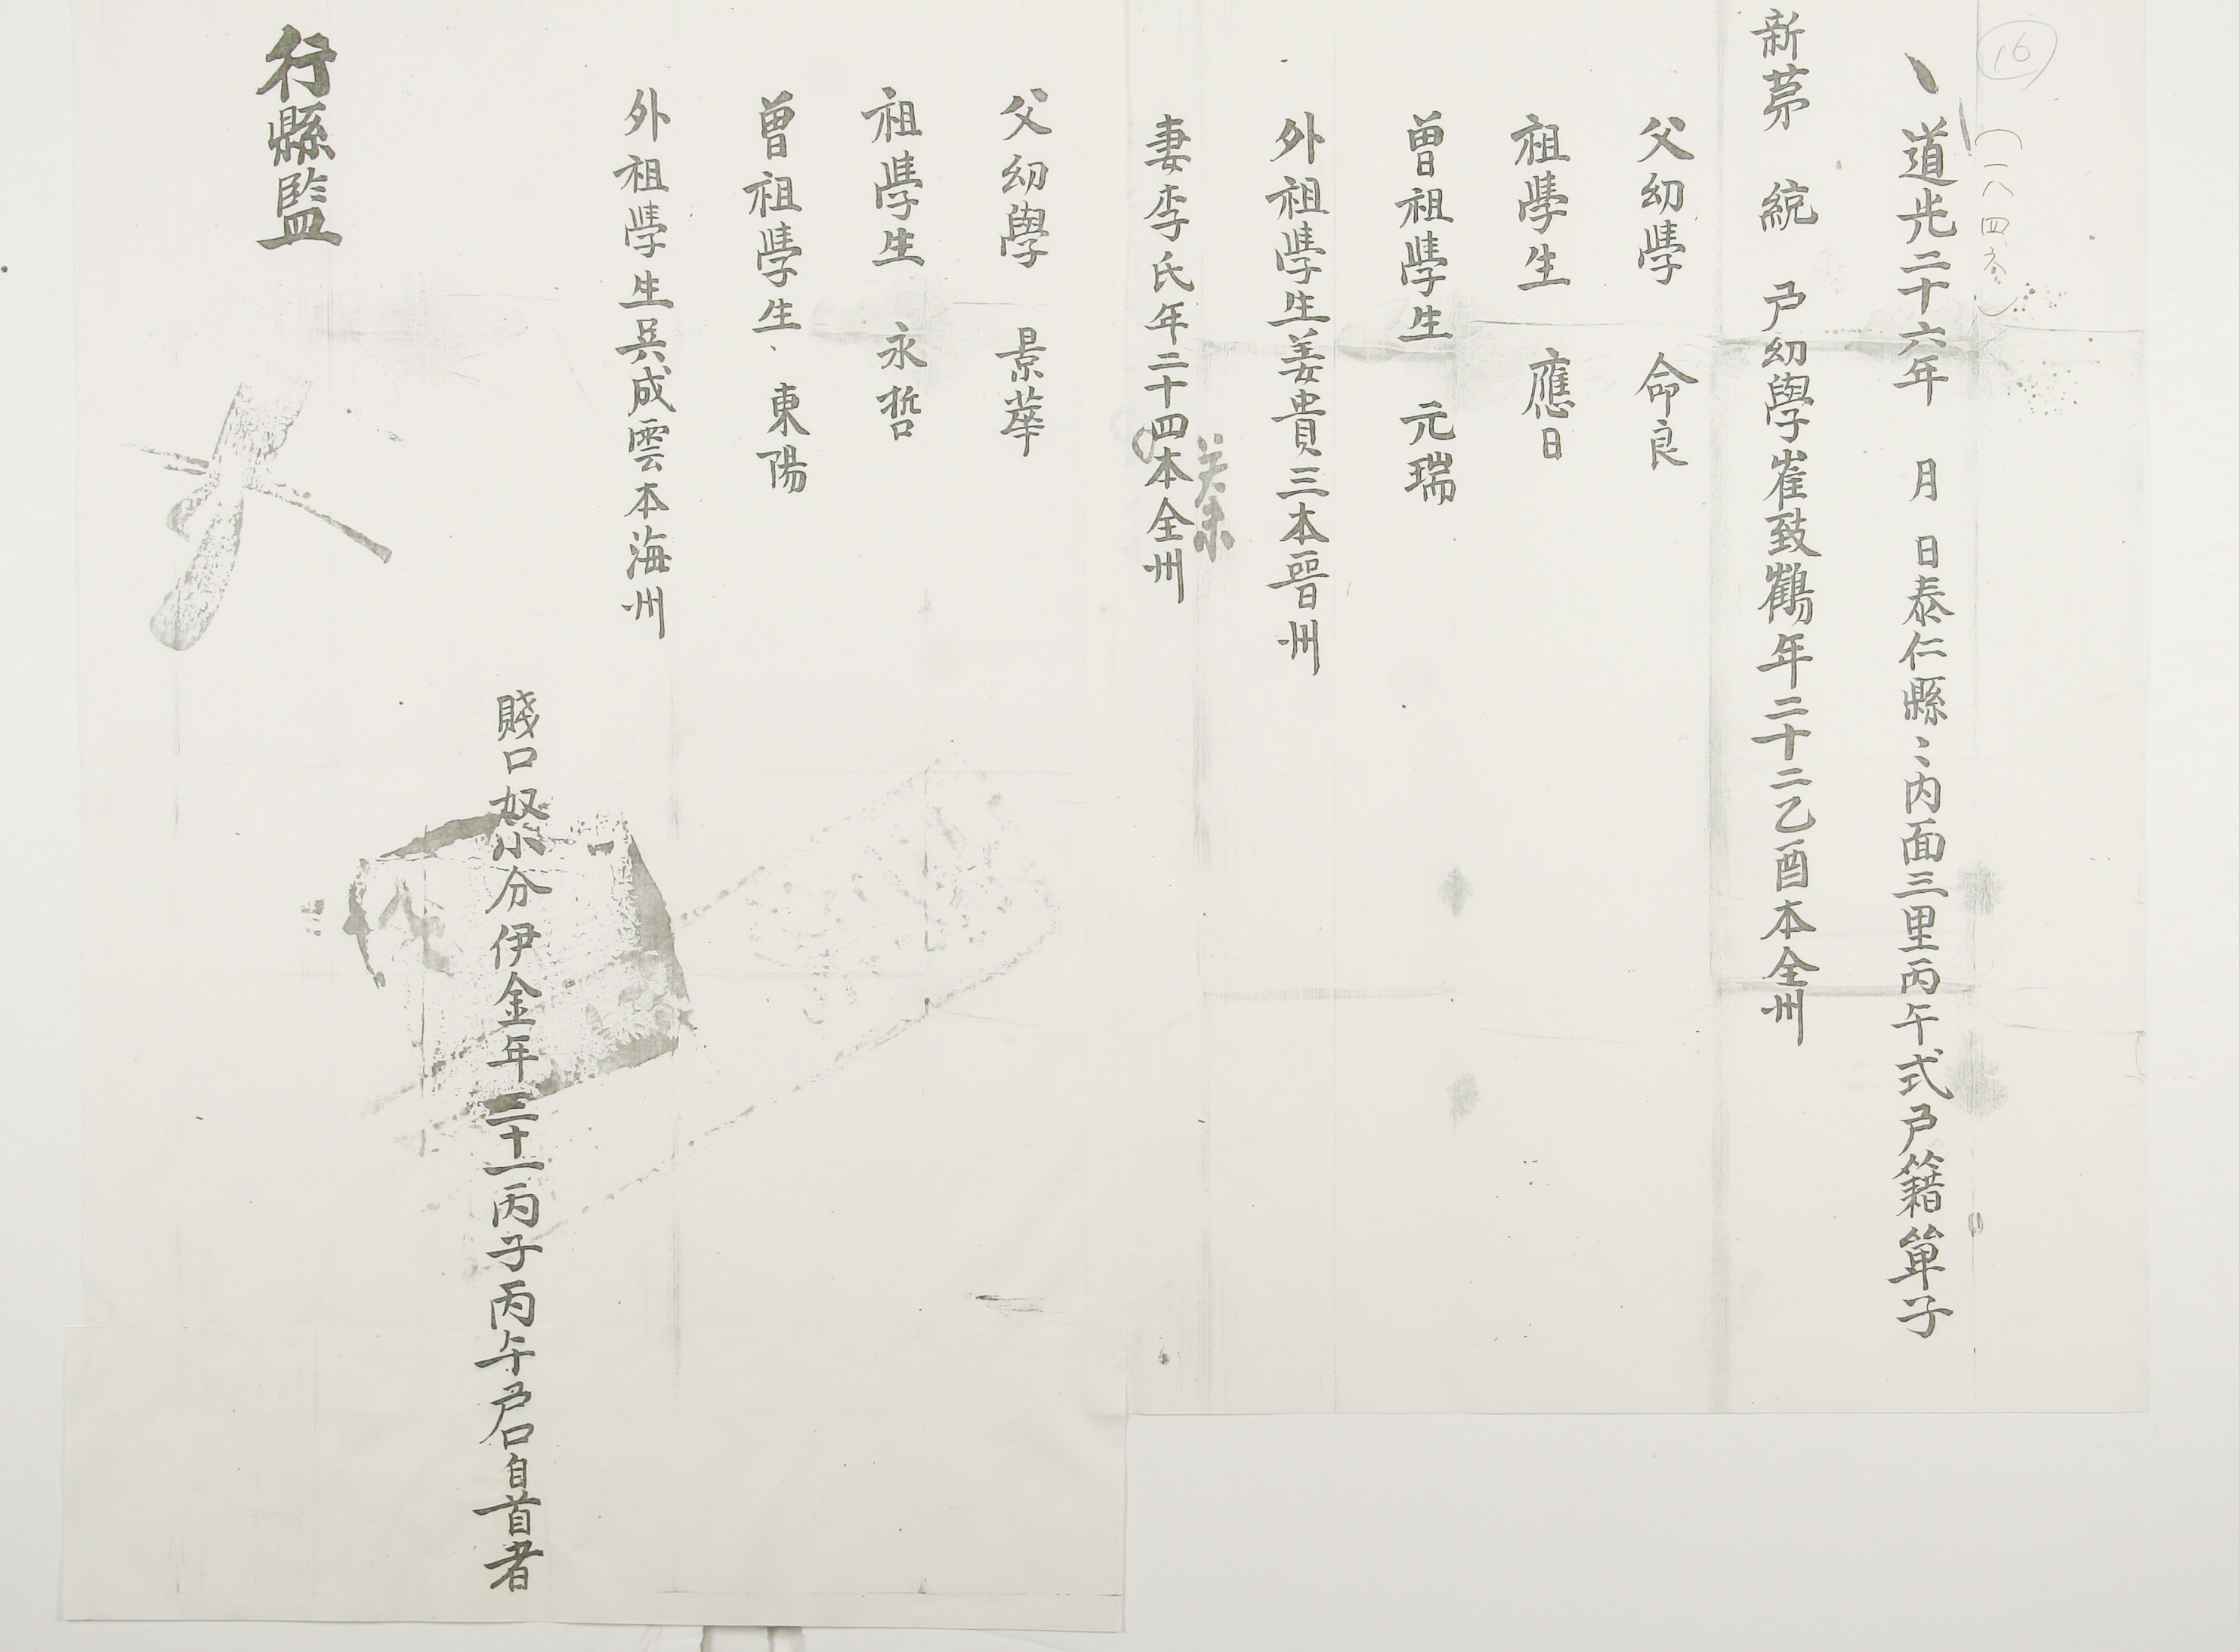 16
(一八四六)
道光二十六年 月 日泰仁縣〻内面三里丙午式戶籍單子
新苐 統 戶幼學崔致鶴年二十二乙酉本全州
父幼學 命良
祖學生 應日
曾祖學生 元瑞
外祖學生姜貴三本晉州
妻李氏年二十四本全州
癸未
父幼學 景華
祖學生 永哲
曾祖學生 東陽
外祖學生吳成雲本海州
賤口奴小分伊金年三十一丙子丙午戶口自首者
行縣監